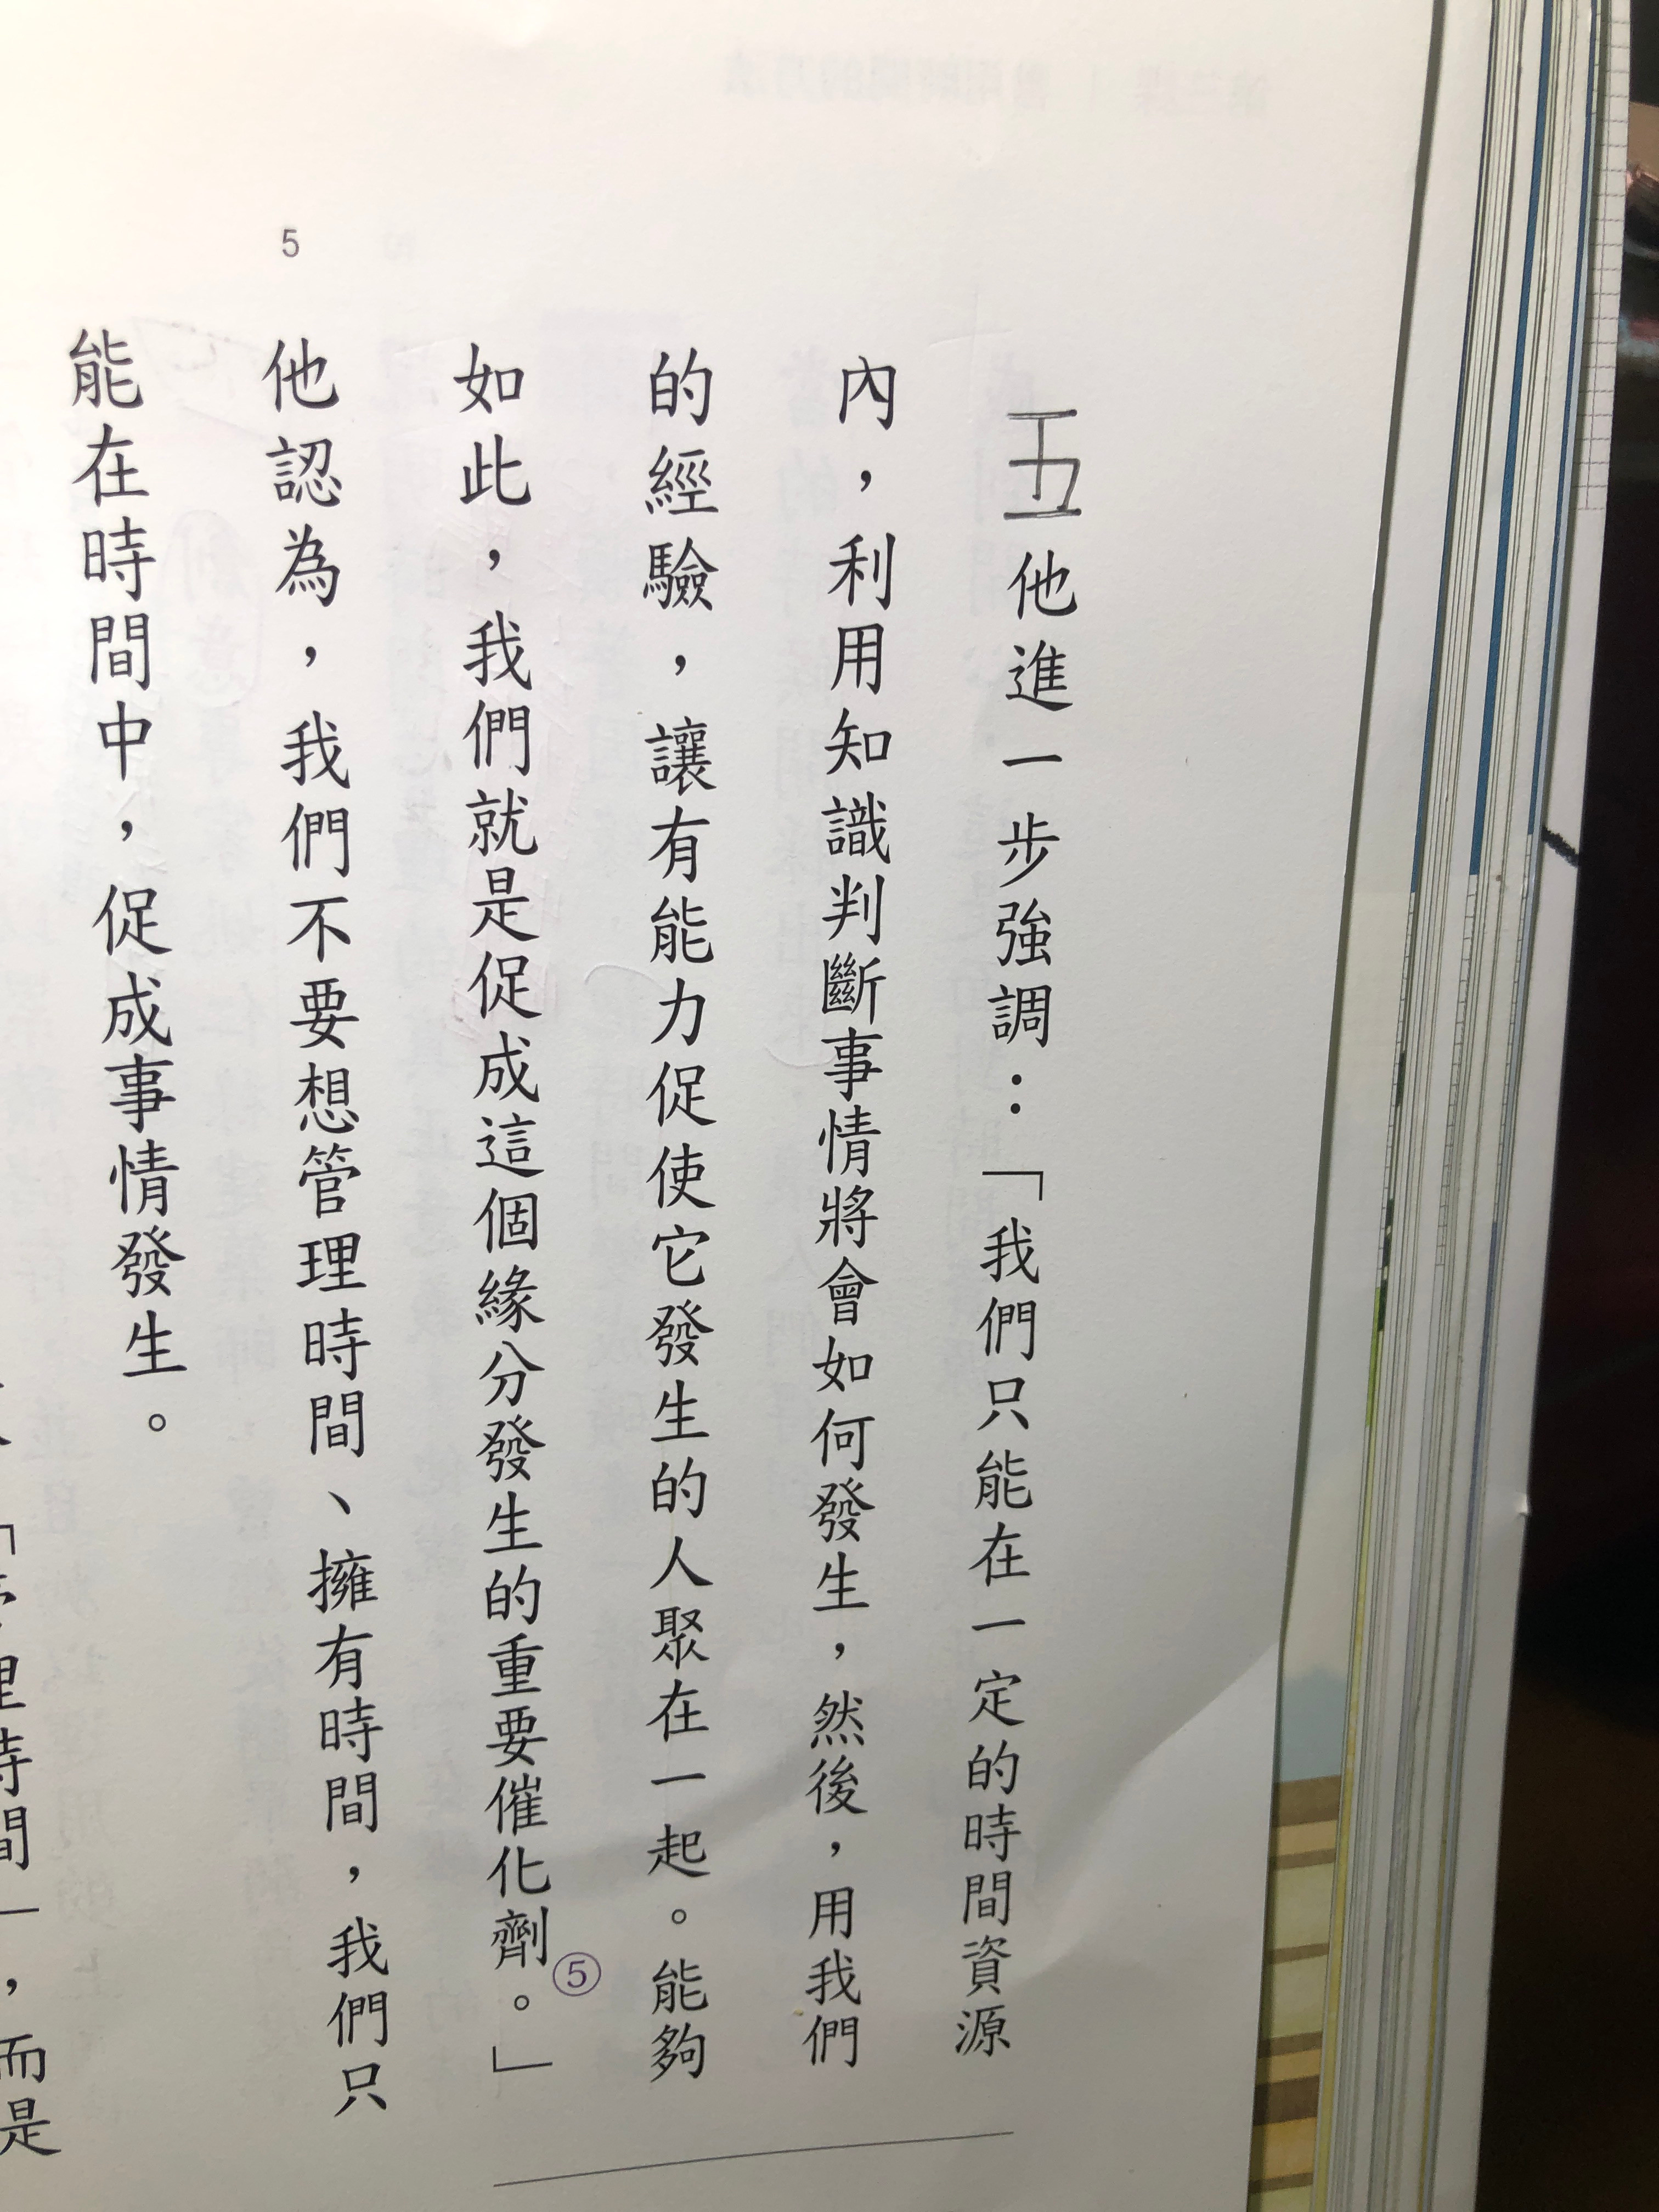 五他進一步強調：「我們只能在一定的時間資源
內，利用知識判斷事情將會如何發生，然後，用我們
的經驗，讓有能力促使它發生的人聚在一起。能夠
如此，我們就是促成這個緣分發生的重要催化劑⑤。」
5
他認為，我們不要想管理時間、擁有時間，我們只
能在時間中，促成事情發生。
理時間」，而是